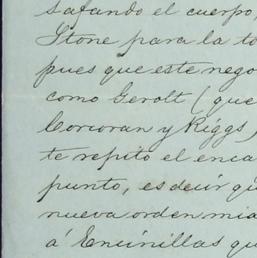 safando el cuerpo,
Stone para la to
pues que este nego
como Gerolt (que
Corcoran y Riggs)
te repito el enca
punto, es decir qu
nueva orden mia
á Encinillas qu